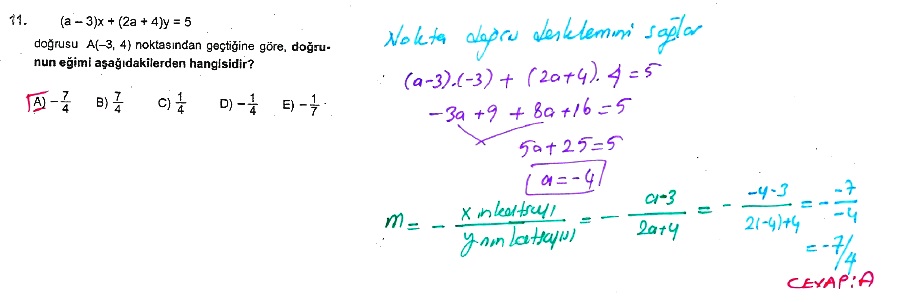 11. (a – 3)x + (2a + 4)y = 5
doğrusu A(–3, 4) noktasından geçtiğine göre, doğru-
nun eğimi aşağıdakilerden hangisidir?
A) –7/4 B) 7/4 C) 1/4 D) –1/4 E) –1/7
Nokta doğru denklemini sağlar
(a-3).(-3) + (2a+4).4 = 5
-3a+9 + 8a+16 = 5
5a+25=5
a=-4
m = - x in katsayı / y nin katsayısı = - a-3 / 2a+4 = - -4-3 / 2(-4)+4 = - -7 / -4
= -7/4
CEVAP: A